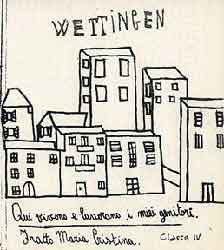 WETTINGEN
Qui vivono e lavorano i miei genitori.
Fratto Maria Cristina. Classe IV